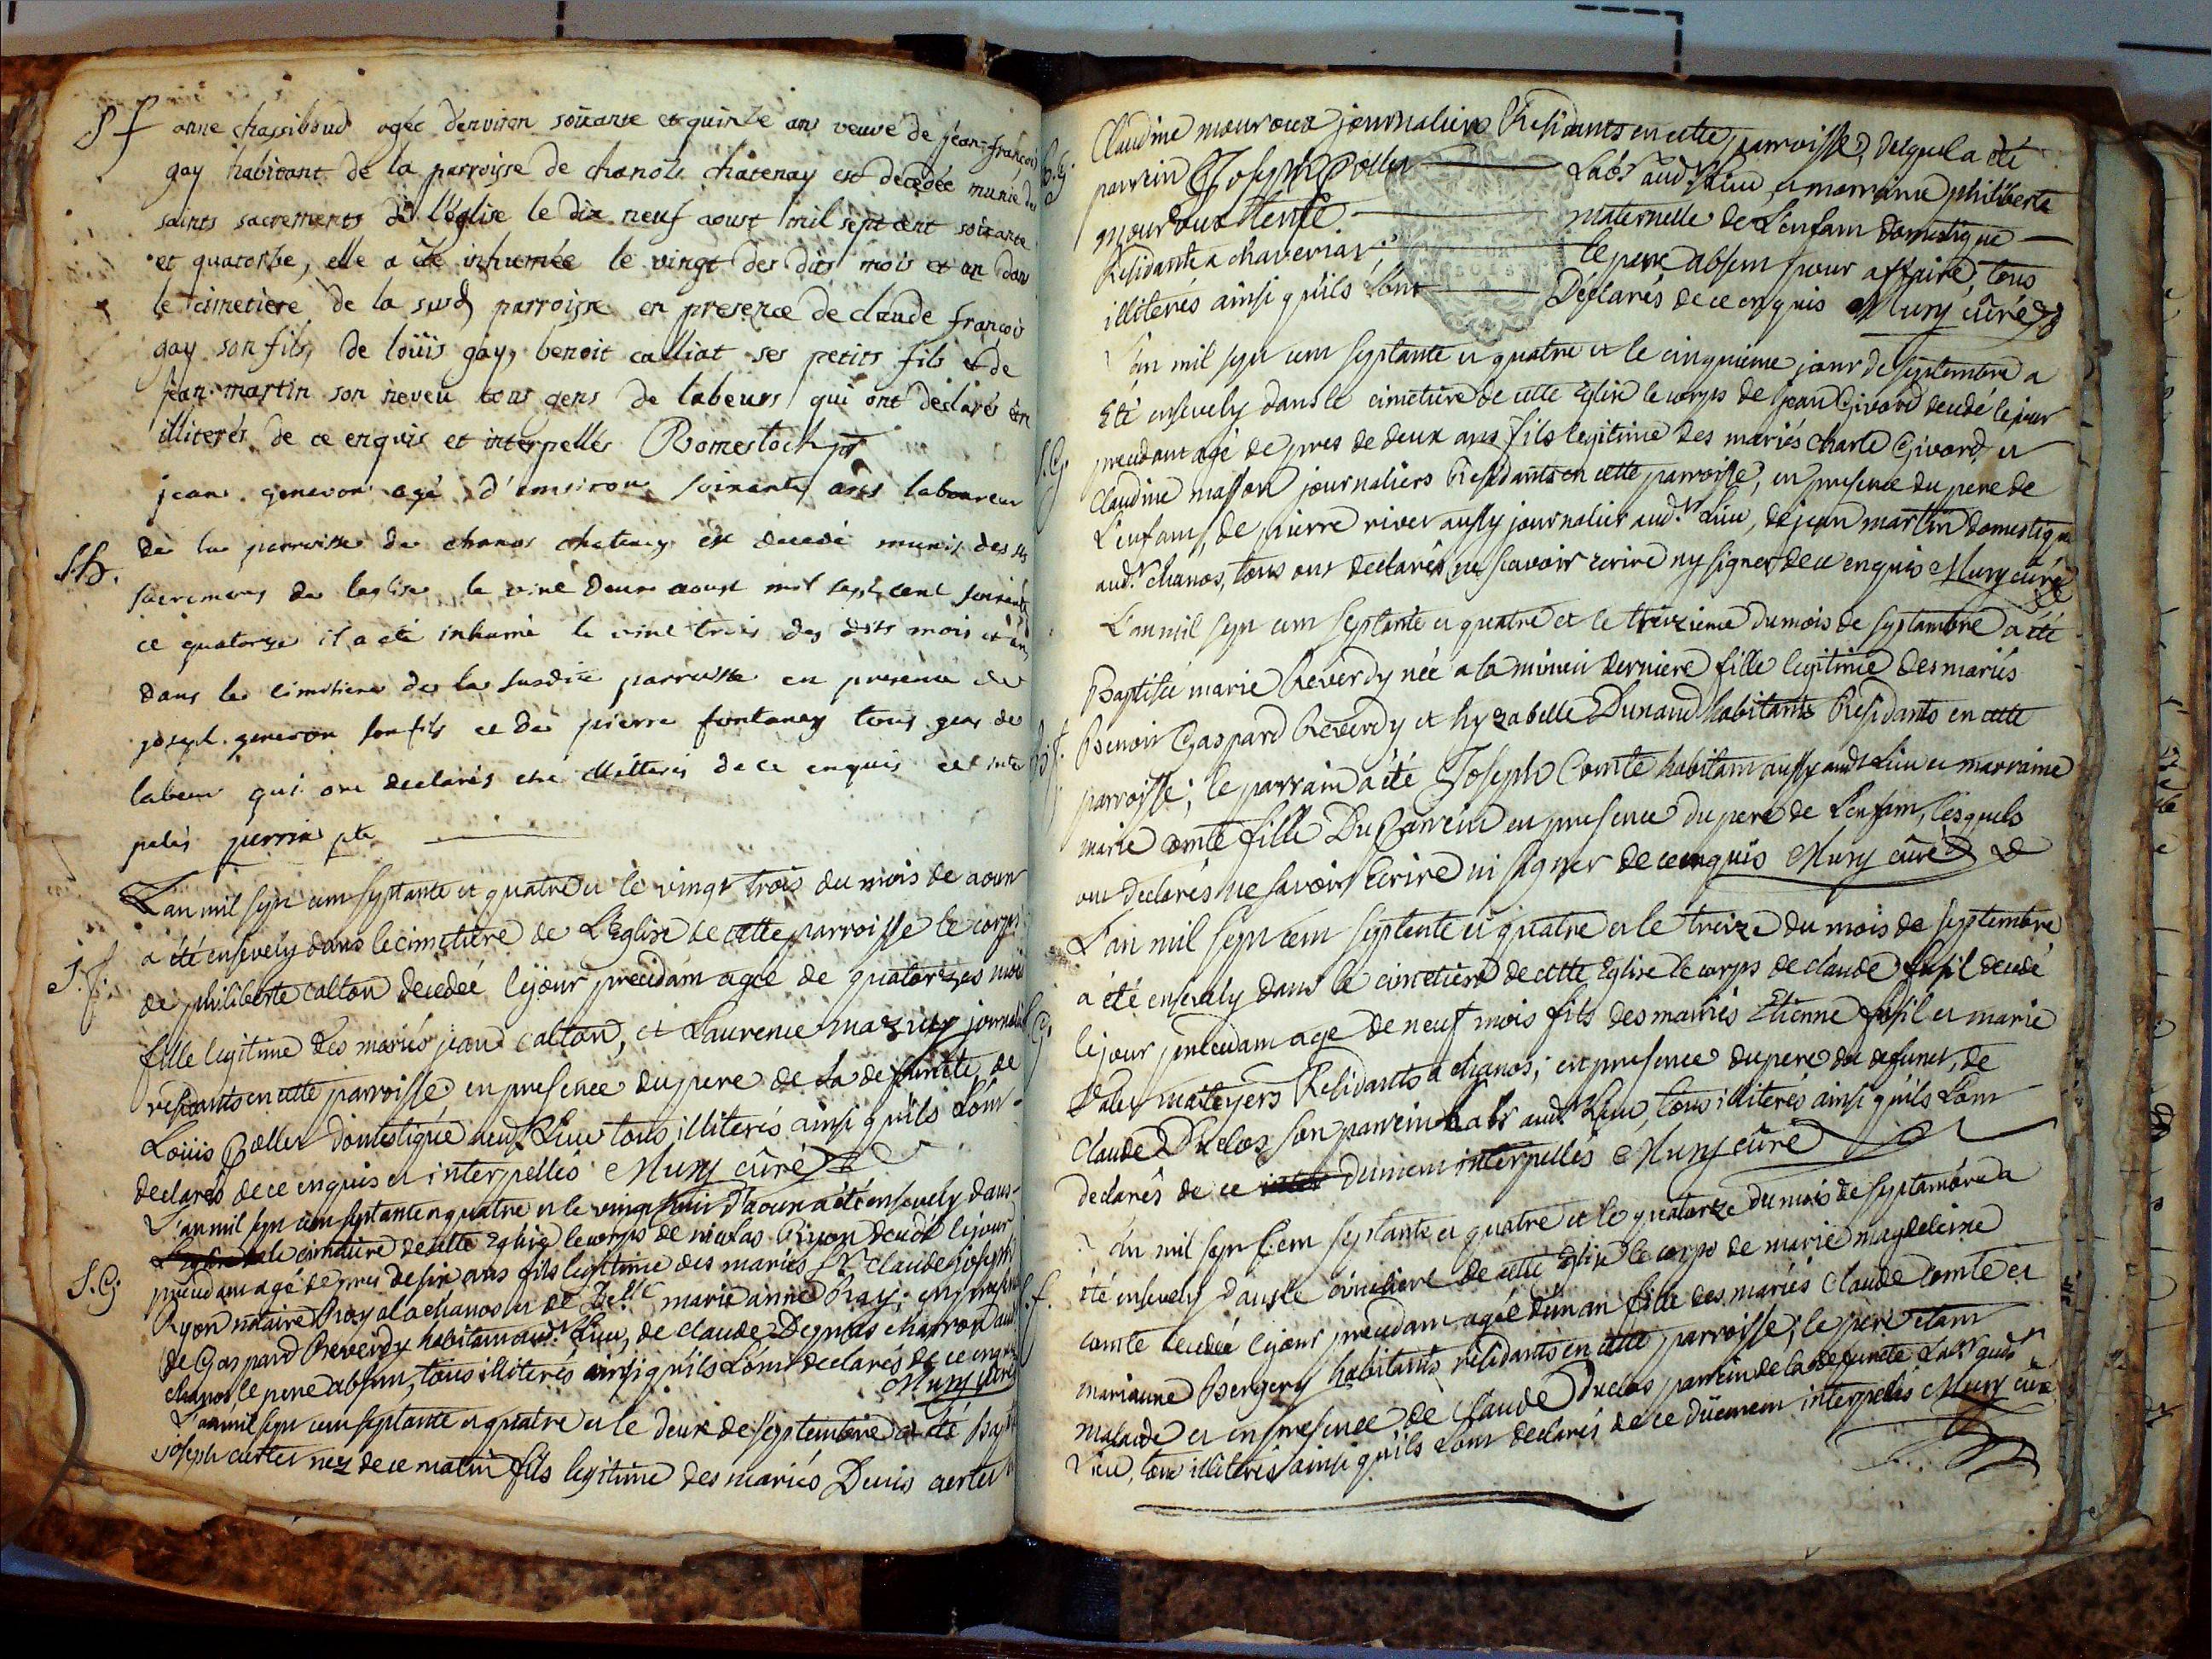 S f anne chassiboud agée d'environ soixante et quinze ans veuve de jean-françois
gay habitant de la parroisse de chanoz chatenay est decedée munie des
saints sacrements de l'église le dix neuf aoust mil sept cent soixante
et quatorse, elle a été inhumée le vingt des dits mois et an dans
le cimetiere de la susd parroisse en presence de claude françois
gay son fils, de loüis gay, benoit calliat ses petits fils et de
jean martin son neveu tous gens de labeurs qui ont déclarés etre
illiterés de ce enquis et interpellés Romestoch ptr
jean generon agé d'environ soixante ans laboureur
S G. de la parroisse de chanos chatenay est decedé munit des sts
sacremens de leglise le vint deux aoust mil sept cent soixante
et quatorze il a été inhumé le vint trois des dits mois et an
dans le cimetiere de la susdite parroisse en presence de
joseph generon son fils et de pierre fontanay tous gens de
labeur qui ont declarés etre illitterés de ce enquis et inter
palés perrin ptr
L'an mil sept cent septante et quatre et le vingt trois du mois de aoust
a été ensevely dans le cimetiere de L'Eglise de cette parroisse le corps
S. f. de philiberte calton decedée le jour precedam agée de quatorzes mois
fille legitime des mariés jean calton, et Laurence mazuy journaliers
residants en cette parroisse en presence du pere de la defuncte, de
Loüis Poller domestique aud. Lieu tous illiterés ainsi qu'ils L'ont
declarés de ce enquis et interpellés Mury cûré
L'an mil sept cent septante et quatre et le vingt huit d'aoust a été ensevely dans
le cimetiere de cette Eglise le corps de nicolas Ryon decedé le jour
S. G. precedam agé de pres de six ans fils legitime des mariés Sr. claude joseph
Ryon notaire Royal a chanos et de Delle marie anne Ray; en presence
de Gaspard Reverdy habitant aud. Lieu, de claude Degnas charron aud.
chanos, le pere absent, tous illiterés ainsi qu'ils L'ont declarés de ce enquis
Mury cûré
L'an mil sept cent septante et quatre et le deux de septembre a été Baptisé
joseph carter nez de ce matin fils legitime des mariés Denis carter et
S. G. Claudine mouroux journaliers Residants en cette parroisse, duquel a été
parrein Joseph Poller Labr aud. Lieu, et marraine philiberte
mouroux tente maternelle de L'enfant domestique
Residante a chaveriat; le pere absent pour affaire, tous
illiterés ainsi qu'ils L'ont Déclarés de ce enquis Mury cûré
L'an mil sept cent septante et quatre et le cinquieme jour de septembre a
Eté ensevely dans le cimetiere de cette Eglise le corps de jean Givord decedé le jour
S. G. precedant agé de pres de deux ans fils legitime des mariés charle Givord, et
Claudine masson journaliers Residants en cette parroisse, en presence du pere de
L'enfant, de pierre river aussy journalier aud. Lieu, de jean martin domestique
aud. chanos, tous ont declarés ne scavoir ecrire ny signer de ce enquis Mury cûré
L'an mil sept cent septante et quatre et le treizieme du mois de septambre a été
Baptisée marie Reverdy née a la minuit derniere fille legitime des mariés
B f. Benoit Gaspard Reverdy et hyzabelle Dunand habitants Residants en cette
parroisse; le parrain a été Joseph Comte habitant aussy aud. Lieu et marraine
marie comte fille Du Parrein en presence du pere de L'enfant, lesquels
ont declarés ne savoir Ecrire ni signer de ce enquis Mury cûré
L'an mil sept cent septente et quatre et le treize du mois de septembre
a été ensevely dans le cimetiere de cette Eglise le corps de claude fusil decedé
S G. le jour precedam age de neuf mois fils des mariés Etienne fusil et marie
mateyers Residants a chanos; en presence du pere du defunct, de
Claude Duclos son parrein Labr aud. Lieu, tous illiterés ainsi qu'ils L'ont
declarés de ce duement interpellés Mury cûré
L'an mil sept Cent septante et quatre et le quatorze du mois de septambre a
été ensevely dans le cimetiere de cette Eglise le corps de marie magdeleine
S. f. comte decedée le jour precedam agée d'un an fille des mariés claude comte et
mariaune Bergery habitants residants en cette parroisse, le pere etant
malade et en presence de Claude Duclos parrein de la defuncte Labr aud.
Lieu, tous illiterés ainsi qu'ils L'ont declarés de ce duement interpelés Mury cûré